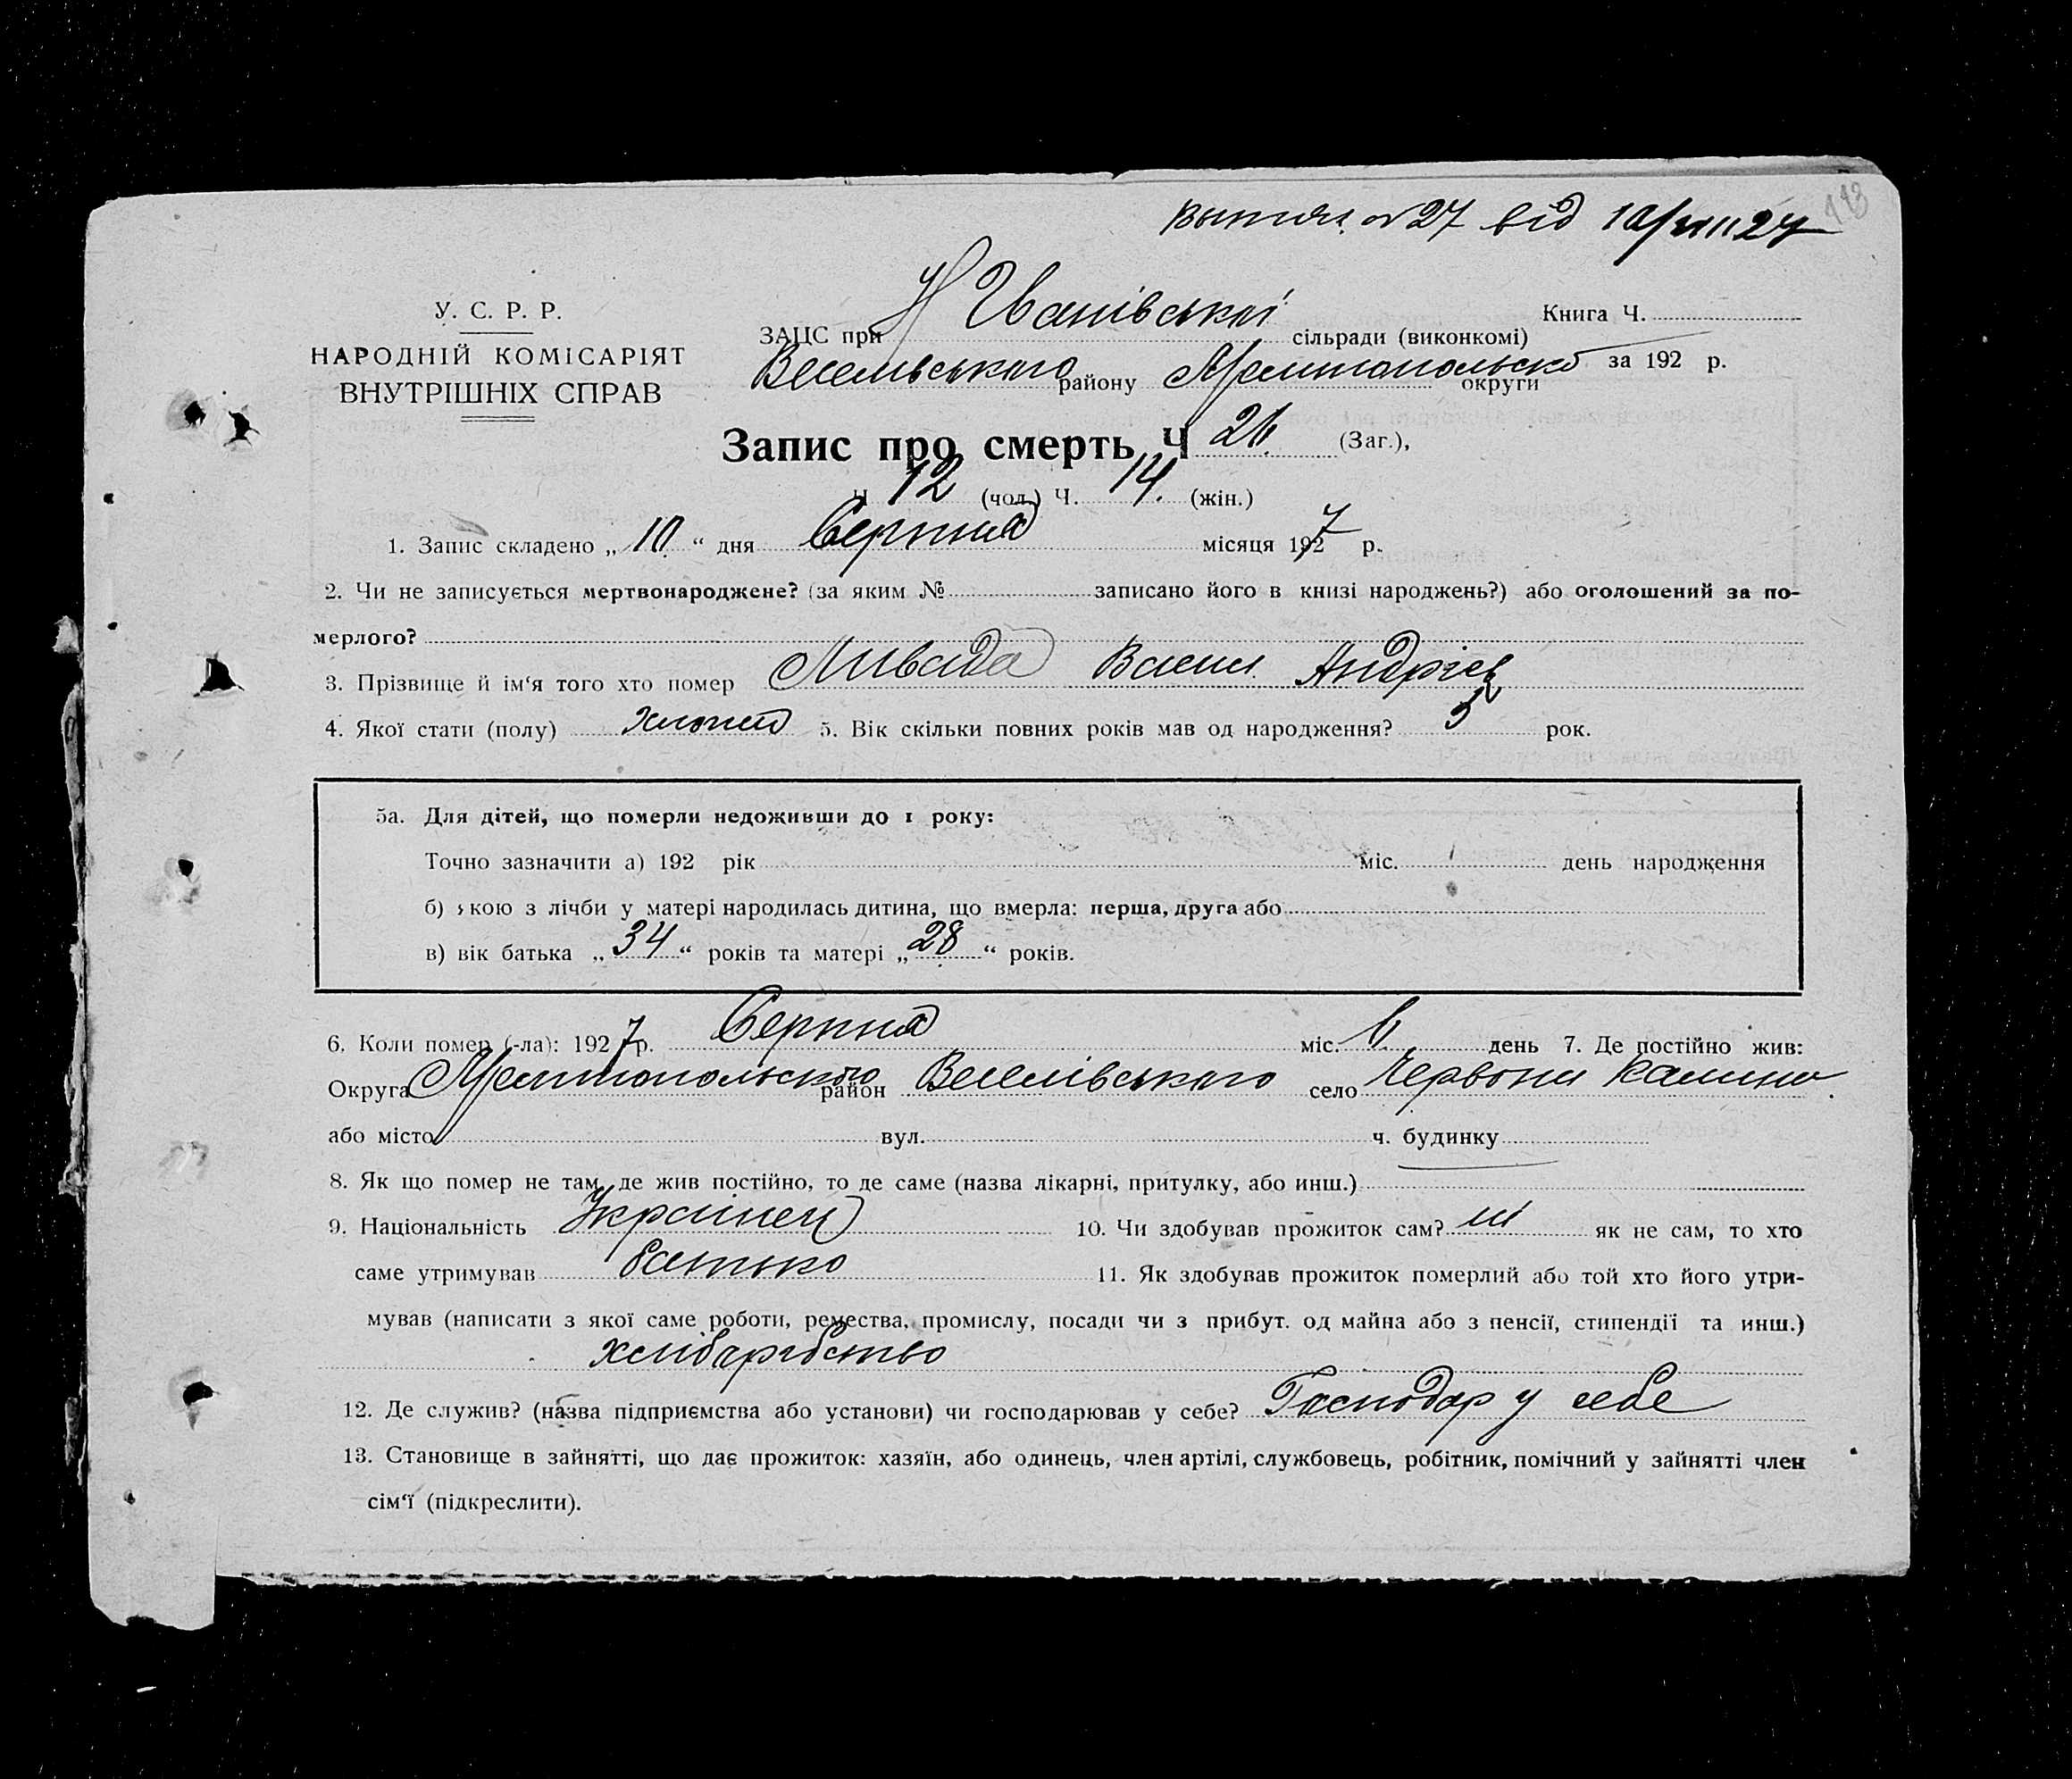 113
вып № 27 від 10/VIII 27
У. С. Р. Р.
НАРОДНІЙ КОМІСАРІЯТ
ВНУТРІШНІХ СПРАВ
Книга Ч.
за 192 р.
ЗАЦС при Н Іванівської сільради (виконкомі)
Веселівського району Мелитопольсько округи
Запис про смерть Ч 26 (Заг.),
Ч 12 (чол.) Ч. 14. (жін.)
1. Запис складено „ 10 “ дня Серпня місяця 1927 р.
2. Чи не записується мертвонароджене? (за яким № записано його в книзі народжень?) або оголошений за по-
мерлого?
3. Прізвище й ім‘я того хто помер Ливада Васил. Андріев
4. Якої стати (полу) хлопец 5. Вік скільки повних років мав од народження? 5 рок.
5а. Для дітей, що померли недоживши до 1 року:
Точно зазначити а) 192 рік міс. день народження
б) якою з лічби у матері народилась дитина, що вмерла: перша, друга або
в) вік батька „ 34 “ років та матері „ 28 “ років.
6. Коли помер (-ла): 1927 р. Серпня міс. 6 день 7. Де постійно жив:
Округа Мелитопольского район Веселівського село Червони Калина
або місто вул. ч. будинку
8. Як що помер не там, де жив постійно, то де саме (назва лікарні, притулку, або инш.)
9. Національність Українец 10. Чи здобував прожиток сам? ні як не сам, то хто
саме утримував батько 11. Як здобував прожиток померлий або той хто його утри-
мував (написати з якої саме роботи, ремества, промислу, посади чи з прибут. од майна або з пенсії, стипендії та инш.)
хлібаробство
12. Де служив? (назва підприємства або установи) чи господарював у себе? Господар у себе
13. Становище в зайнятті, що дає прожиток: хазяїн, або одинець, член артілі, службовець, робітник, помічний у зайнятті член
сім‘ї (підкреслити).